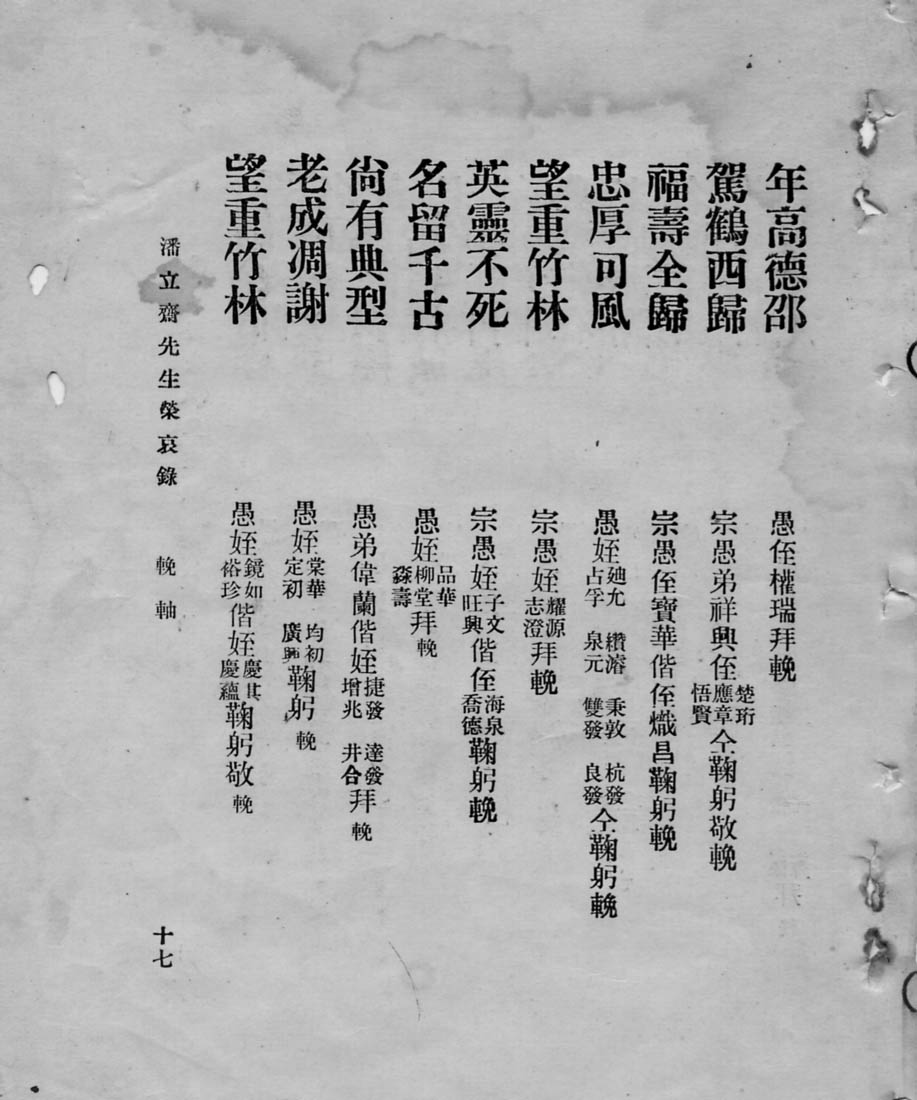 年高德邵 愚侄權瑞拜輓
駕鶴西歸 宗愚弟祥興侄楚珩應章悟賢仝鞠躬敬輓
福壽全歸 宗愚侄寶華偕侄熾昌鞠躬輓
忠厚可風 愚姪廸允占孚 纘濬泉元 秉敦雙發 杭發良發仝鞠躬輓
望重竹林 宗愚姪耀源志澄拜輓
英靈不死 宗愚姪子文旺興偕侄海泉喬德鞠躬輓
名留千古 愚姪品華柳堂森壽拜輓
尙有典型 愚弟偉蘭偕姪捷發增兆 達發井合拜輓
老成凋謝 愚姪棠華定初 均初廣興鞠躬輓
望重竹林 愚姪鏡如裕珍偕姪慶其慶蘊鞠躬敬輓
潘立齋先生榮哀錄 輓軸 十七